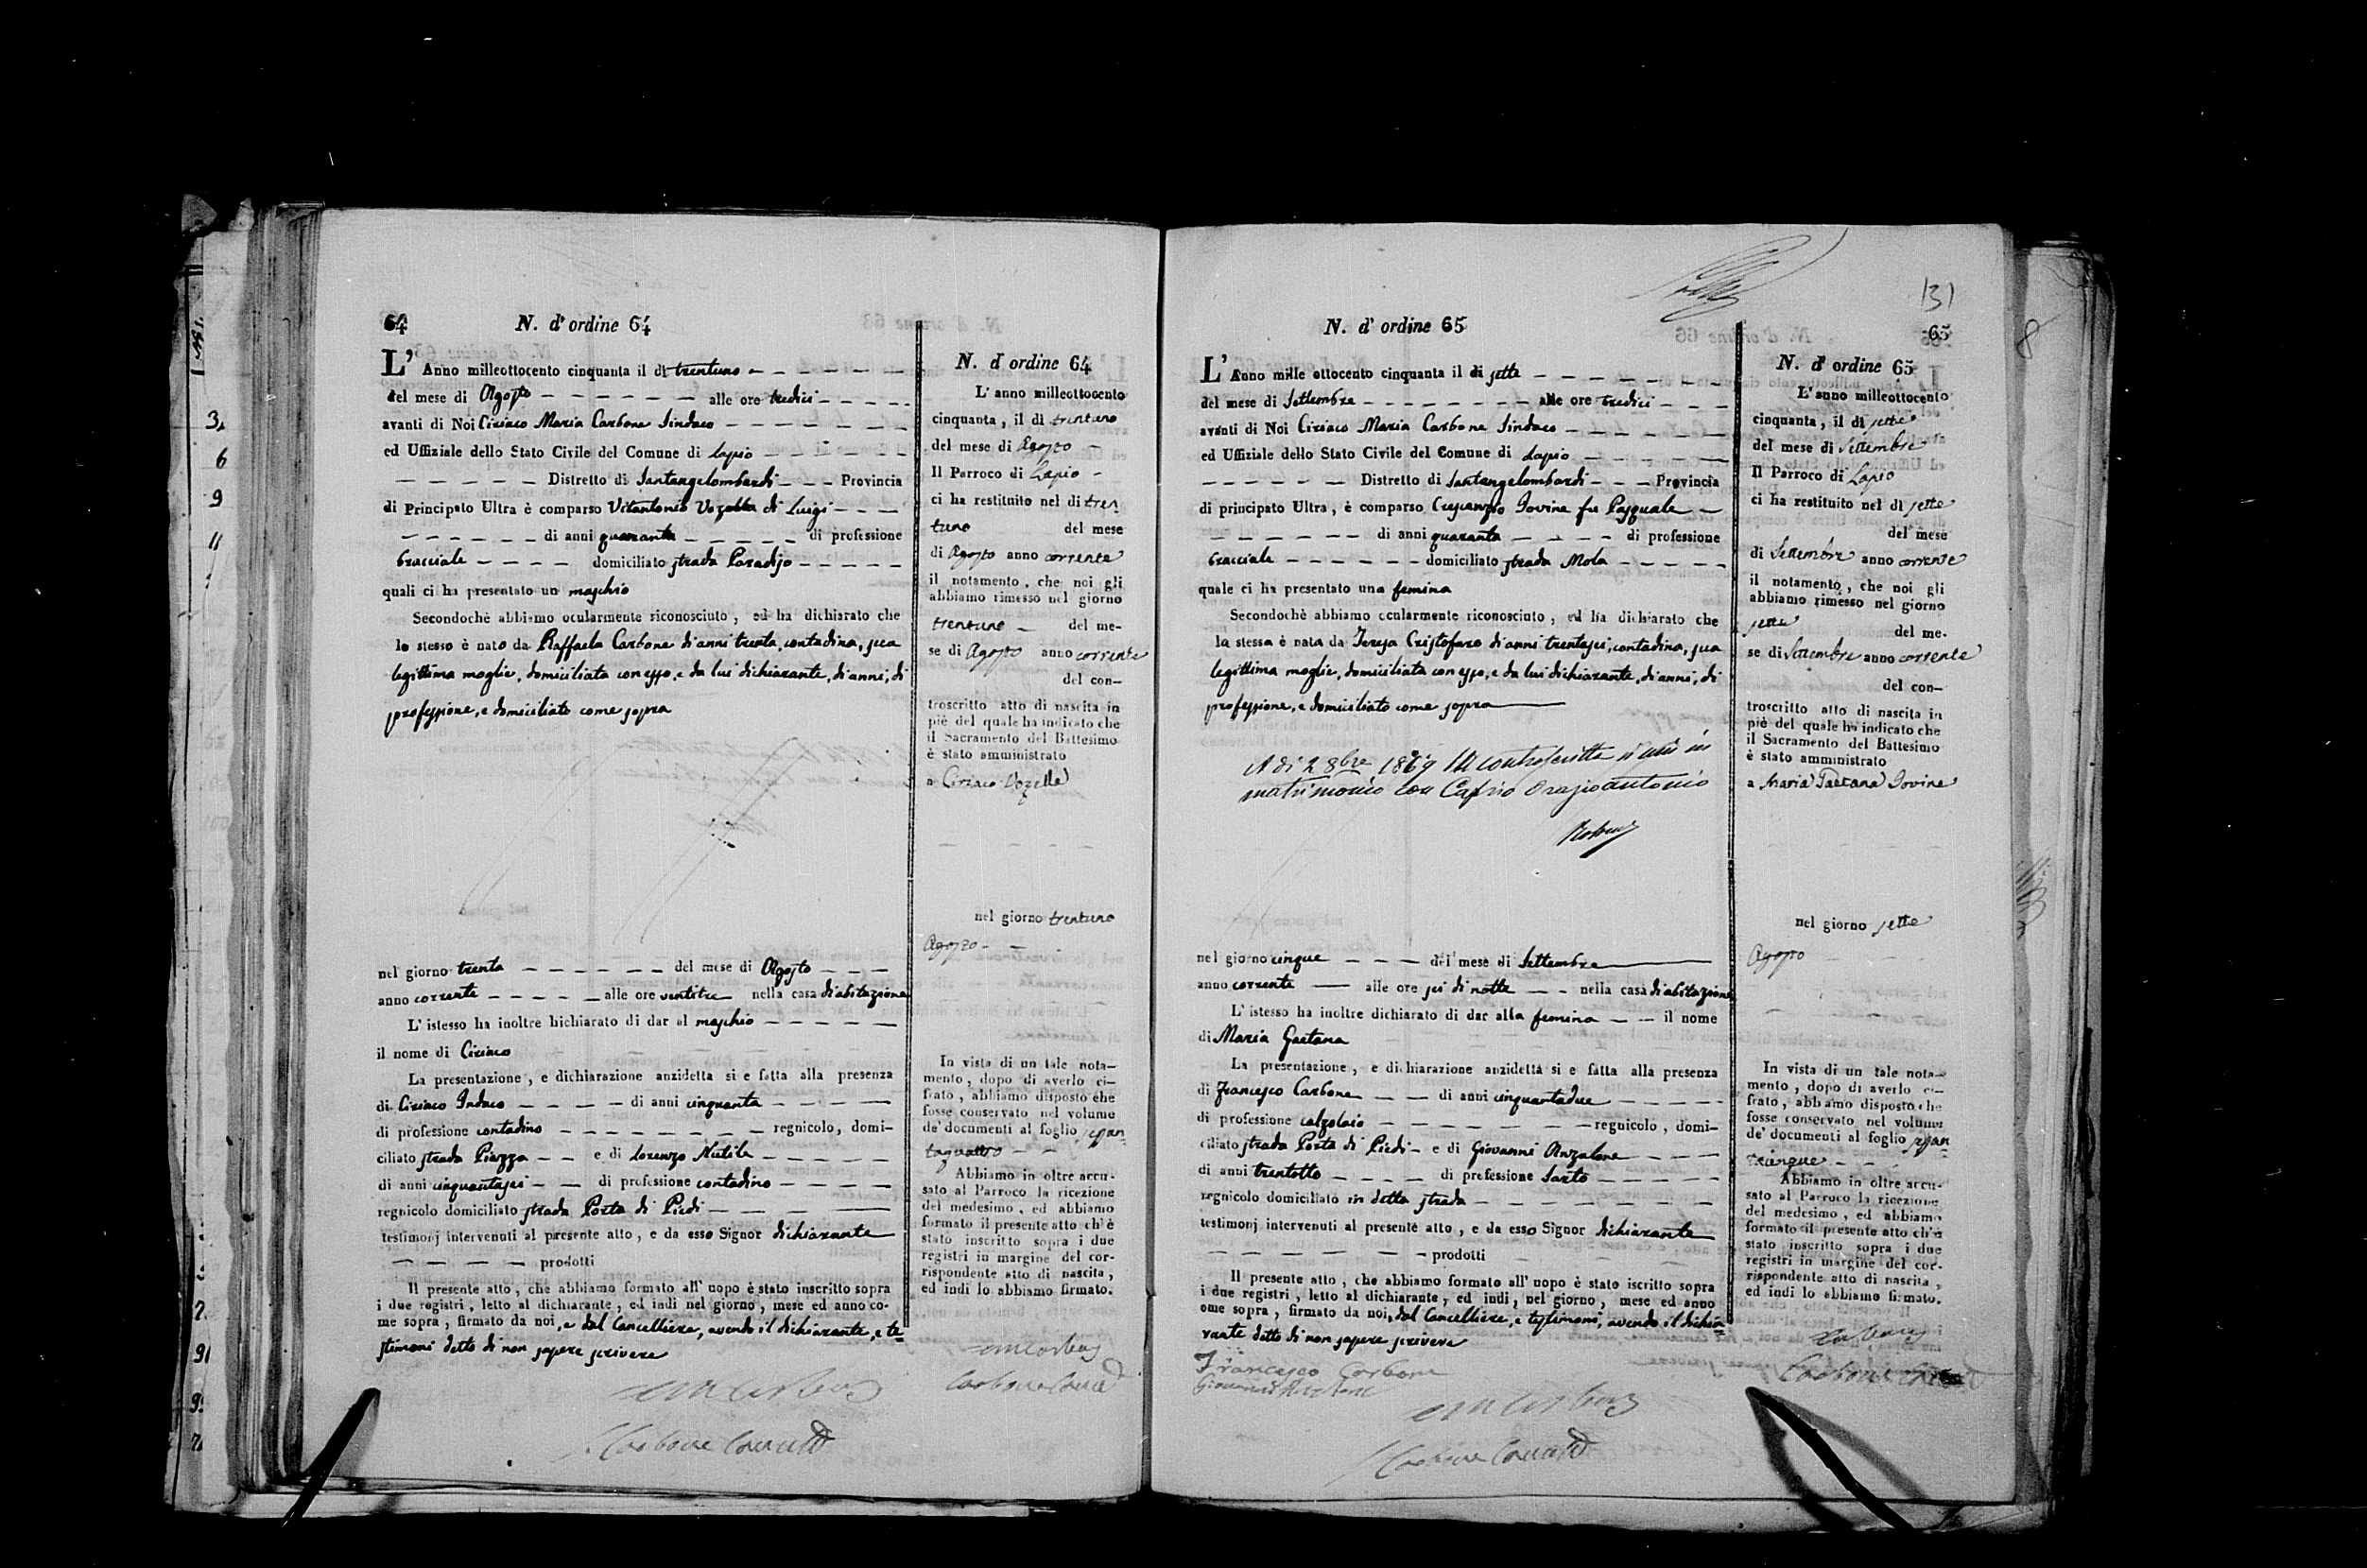 64
N. d' ordine 64
L' Anno milleottocento cinquanta il dì trentuno
del mese di Agosto alle ore tredici
avanti di Noi Ciriaco Maria Carbone Sindaco
ed Uffiziale dello Stato Civile del Comune di Lapio
Distretto di Santangelombardi Provincia
di Principato Ultra è comparso Vitantonio Vozella di Luigi
di anni quaranta di professione
bracciale domiciliato strada Paradiso
quali ci ha presentato un maschio
Secondochè abbiamo ocularmente riconosciuto, ed ha dichiarato che
lo stesso è nato da Raffaela Carbone di anni trenta, contadina, sua
legittima moglie, domiciliata con esso, e da lui dichiarante, di anni, di
professione, e domiciliato come sopra
nel giorno trenta del mese di Agosto
anno corrente alle ore ventitre nella casa di abitazione
L' istesso ha inoltre hichiarato di dar al maschio
il nome di Ciriaco
La presentazione, e dichiarazione anzidetta si e fatta alla presenza
di Ciriaco Indaco di anni cinquanta
di professione contadino regnicolo, domi-
ciliato strada Piazza e di Lorenzo Nutile
di anni cinquantasei di professione contadino
regnicolo domiciliato strada Porta di Piedi
testimonj intervenuti al presente atto, e da esso Signor dichiarante
prodotti
Il presente atto, che abbiamo formato all' uopo è stato inscritto sopra
i due registri, letto al dichiarante, ed indi nel giorno, mese ed anno co-
me sopra, firmato da noi, e dal Cancelliere, avendo il dichiarante, e te-
stimoni detto di non sapere scrivere
N. d' ordine 64
L' anno milleottocento
cinquanta, il dì trentuno
del mese di Agosto
Il Parroco di Lapio
ci ha restituito nel di tren
tuno del mese
di Agosto anno corrente
il notamento, che noi gli
abbiamo rimesso nel giorno
trentuno del me-
se di Agosto anno corrente
del con-
troscritto atto di nascita in
piè del quale ha indicato che
il Sacramento del Battesimo
è stato amministrato
a Ciriaco Vozella
nel giorno trentuno
Agosto
In vista di un tale nota-
mento, dopo di averlo ci-
frato, abbiamo disposto che
fosse conservato nel volume
de' documenti al foglio sessan
taquattro
Abbiamo in oltre accu-
sato al Parroco la ricezione
del medesimo, ed abbiamo
formato il presente atto ch' è
stato inscritto sopra i due
registri in margine del cor-
rispondente atto di nascita,
ed indi lo abbiamo firmato.
131
65
N. d' ordine 65
L' Anno mille ottocento cinquanta il di sette
del mese di Settembre alle ore tredici
avanti di Noi Ciriaco Maria Carbone Sindaco
ed Uffiziale dello Stato Civile del Comune di Lapio
Distretto di Santangelombardi Provincia
di principato Ultra, è comparso Crescenzio Iovine fu Pasquale
di anni quaranta di professione
bracciale domiciliato strada Mola
quale ci ha presentato una femina
Secondochè abbiamo ocularmente riconosciuto, ed ha dichiarato che
la stessa è nata da Teresa Cristofaro di anni trentasei, contadina, sua
legittima moglie, domiciliata con esso, e da lui dichiarante, di anni, di
professione, e domiciliato come sopra
A dì 2 8bre 1869 la controscritta si unì in
matrimonio con Orazioantonio
nel giorno cinque del mese di Settembre
anno corrente alle ore sei di notte nella casa di abitazione
L' istesso ha inoltre dichiarato di dar alla femina il nome
di Maria Gaetana
La presentazione, e dichiarazione anzidetta si e fatta alla presenza
di Francesco Carbone di anni cinquantadue
di professione calzolaio regnicolo, domi-
ciliato strada Porta di Piedi e di Giovanni Anzalone
di anni trentotto di professione Sarto
regnicolo domiciliato in detta strada
testimonj intervenuti al presente atto, e da esso Signor dichiarante
prodotti
Il presente atto, che abbiamo formato all' uopo è stato iscritto sopra
i due registri, letto al dichiarante, ed indi, nel giorno, mese ed anno
ome sopra, firmato da noi, dal Cancelliere, e testimoni, avendo il dichia-
rante detto di non sapere scrivere
Francesco Carbone
Giovanni Anzalone
N. d' ordine 65
L' anno milleottocento
cinquanta, il dì sette
del mese di Settembre
Il Parroco di Lapio
ci ha restituito nel dì sette
del mese
di Settembre anno corrente
il notamento, che noi gli
abbiamo rimesso nel giorno
sette del me-
se di Settembre anno corrente
del con-
troscritto atto di nascita in
piè del quale ha indicato che
il Sacramento del Battesimo
è stato amministrato
a Maria Gaetana Iovine
nel giorno sette
Agosto
In vista di un tale nota-
mento, dopo di averlo ci-
frato, abbiamo disposto che
fosse conservato nel volume
de' documenti al foglio sessan
tacinque
Abbiamo in oltre accu-
sato al Parroco la ricezione
del medesimo, ed abbiamo
formato il presente atto ch' è
stato inscritto sopra i due
registri in margine del cor-
rispondente atto di nascita,
ed indi lo abbiamo firmato.